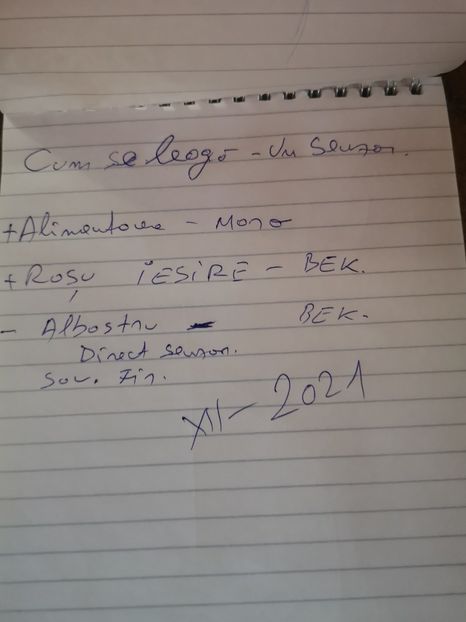 Cum se leagă - Un Senzor.
+ Alimentarea - Maro
+ Roșu IESIRE - BEK.
- Albastru - BEK.
Direct senzor.
sau. Fin.
XII - 2021